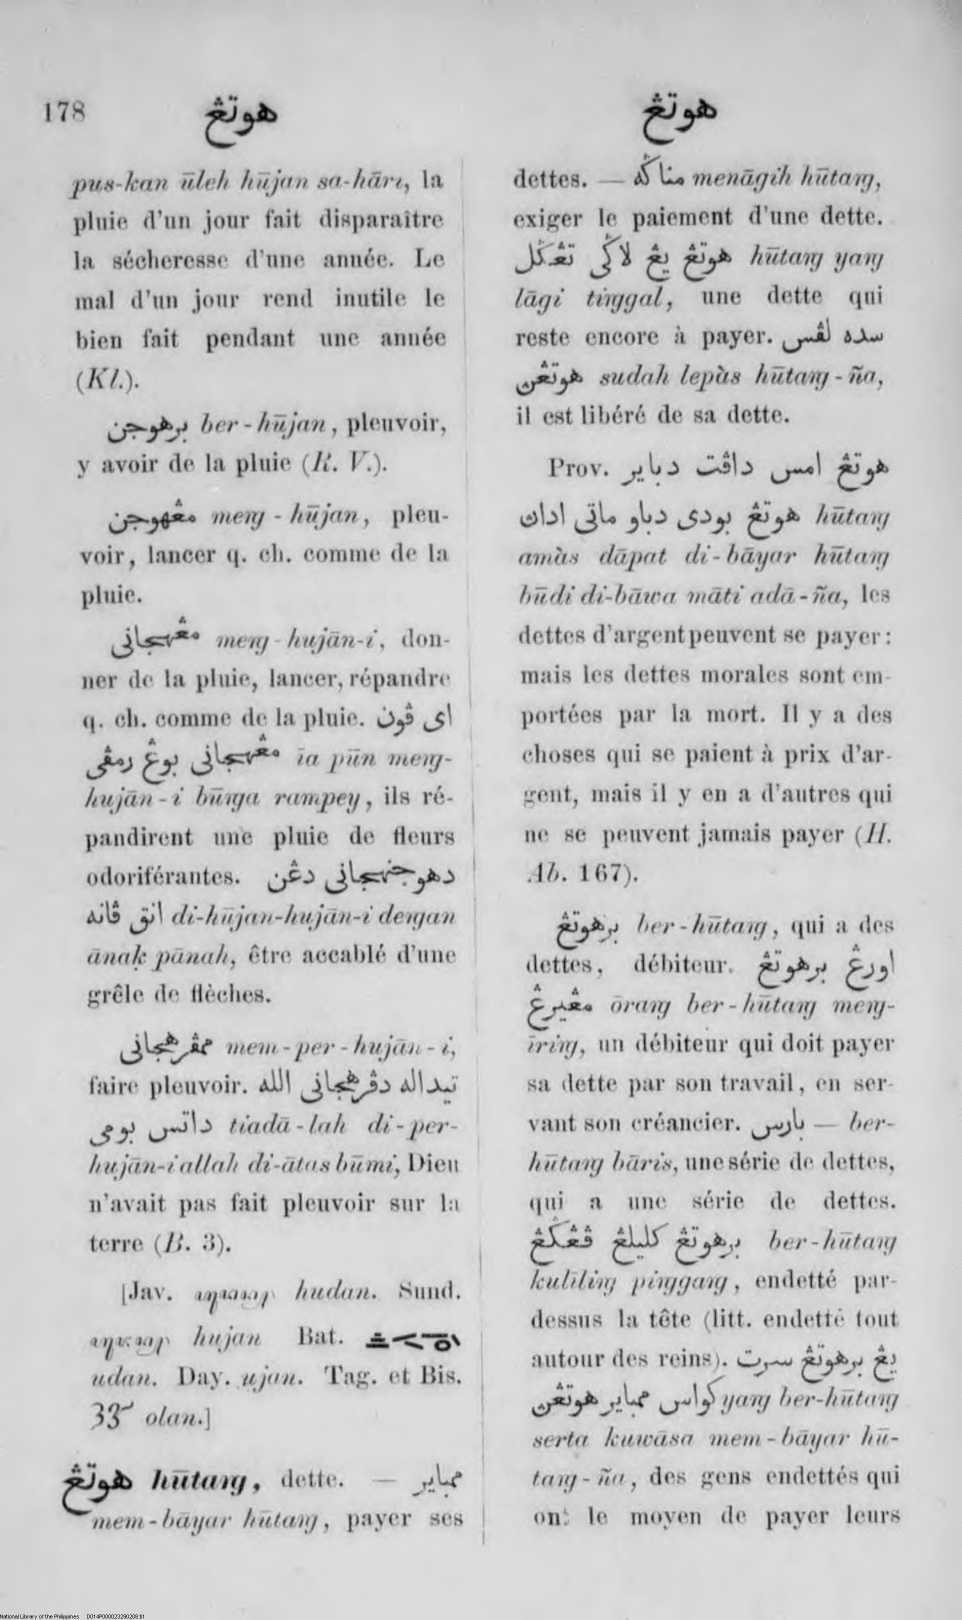 178 هوتڠ
هوتڠ
pus-kan ūleh hūjan sa-hāri, la
pluie d'un jour fait disparaître
la sécheresse d'une année. Le
mal d'un jour rend inutile le
bien fait pendant une année
(Kl.).
برهوجن ber-hūjan, pleuvoir,
y avoir de la pluie (R. V.).
مڠهوجن meng-hūjan, pleu-
voir, lancer q. ch. comme de la
pluie.
مڠهجاني meng-hujān-i, don-
ner de la pluie, lancer, répandre
q. ch. comme de la pluie. اي ڤون
مڠهجاني بوڠ رمڤي īa pūn meng-
hujān-i būnga rampey, ils ré-
pandirent une pluie de fleurs
odoriférantes. دهوجنهجاني دڠن
انق ڤانه di-hūjan-hujān-i dengan
ānaḳ pānah, être accablé d'une
grêle de flèches.
ممڤرهجاني mem-per-hujān-i,
faire pleuvoir. تيداله دڤرهجاني الله
داتس بومي tiadā-lah di-per-
hujān-i allah di-ātas būmi, Dieu
n'avait pas fait pleuvoir sur la
terre (B. 3).
[Jav. hudan. Sund.
hujan Bat.
udan. Day. ujan. Tag. et Bis.
olan.]
هوتڠ hūtang, dette. — ممباير
mem-bāyar hūtang, payer ses
dettes. — مناݢه menāgih hūtang,
exiger le paiement d'une dette.
هوتڠ يڠ لاݢي تڠݢل hūtang yang
lāgi tinggal, une dette qui
reste encore à payer. سده لڤس
هوتڠن sudah lepàs hūtang-ña,
il est libéré de sa dette.
Prov. هوتڠ امس داڤت دباير
هوتڠ بودي دباو ماتي ادان hūtang
amàs dāpat di-bāyar hūtang
būdi di-bāwa māti adā-ña, les
dettes d'argent peuvent se payer:
mais les dettes morales sont em-
portées par la mort. Il y a des
choses qui se paient à prix d'ar-
gent, mais il y en a d'autres qui
ne se peuvent jamais payer (H.
Ab. 167).
برهوتڠ ber-hūtang, qui a des
dettes, débiteur. اورڠ برهوتڠ
مڠيرڠ ōrang ber-hūtang meng-
īring, un débiteur qui doit payer
sa dette par son travail, en ser-
vant son créancier. بارس — ber-
hūtang bāris, une série de dettes,
qui a une série de dettes.
برهوتڠ كليلڠ ڤڠݢڠ ber-hūtang
kulīling pinggang, endetté par-
dessus la tête (litt. endetté tout
autour des reins). يڠ برهوتڠ سرت
كواس ممباير هوتڠن yang ber-hūtang
serta kuwāsa mem-bāyar hū-
tang-ña, des gens endettés qui
ont le moyen de payer leurs
National Library of the Philippines